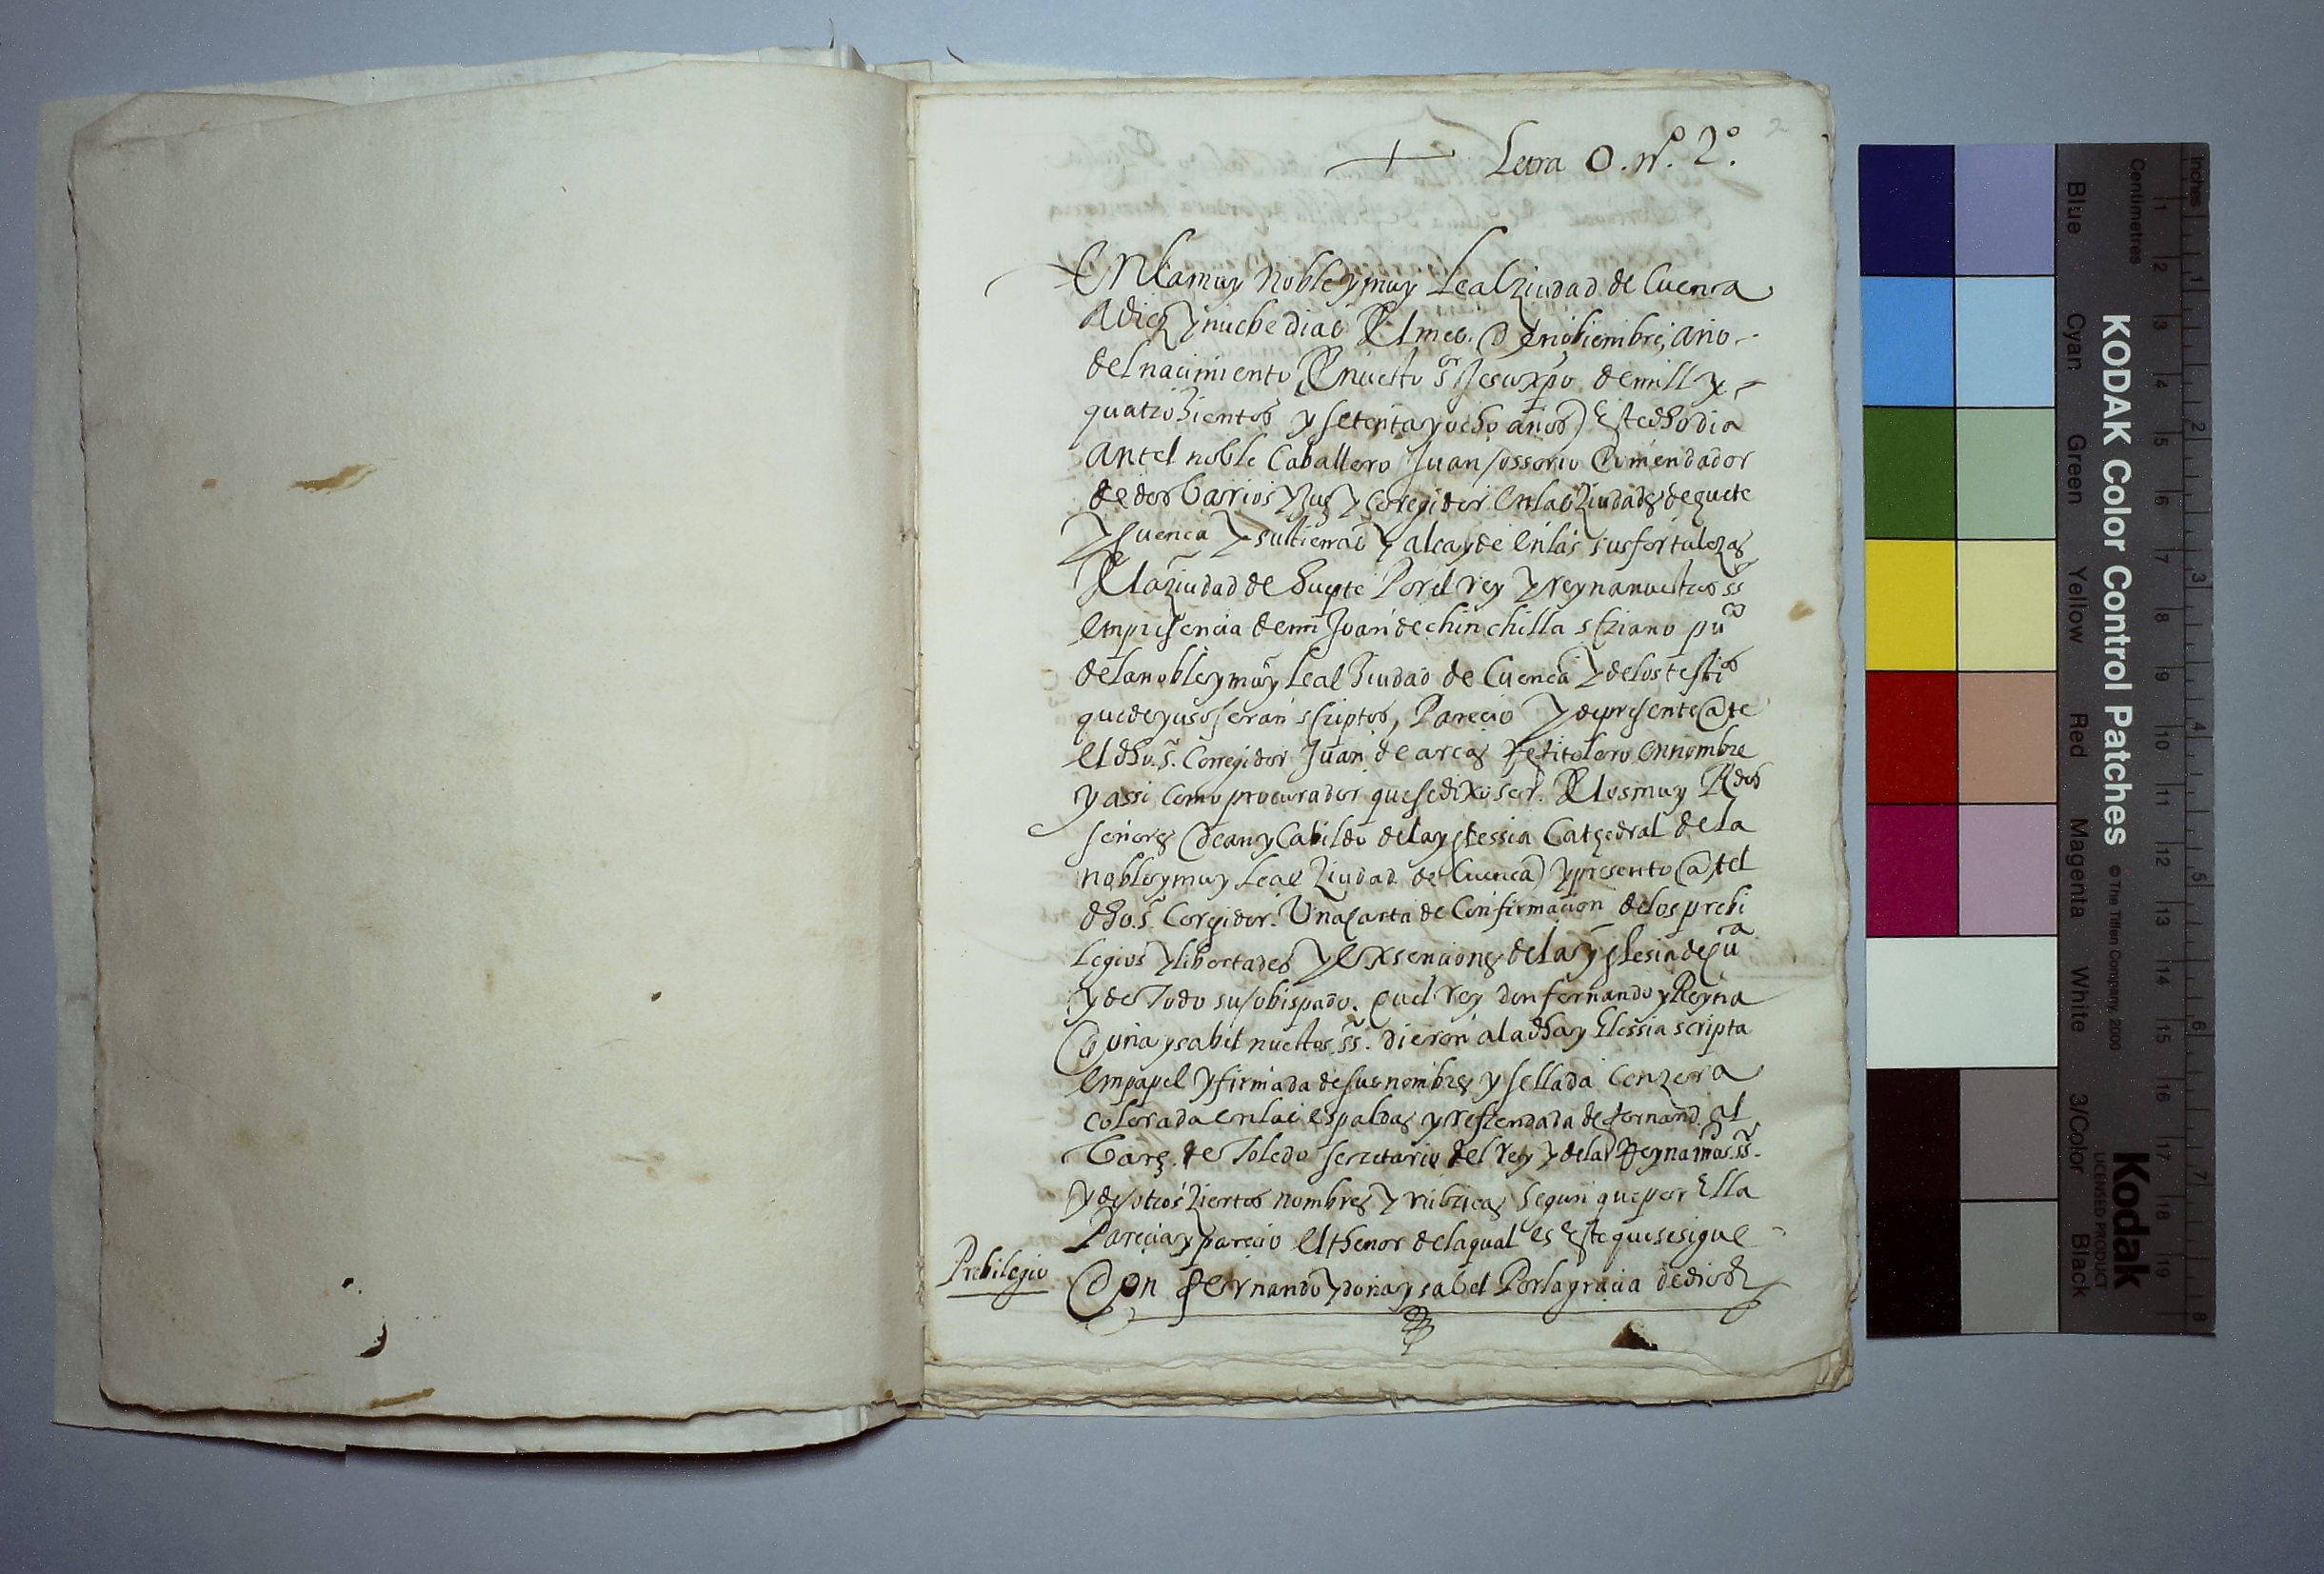 2
+ Letra O. Nº. 2º.
En la muy noble y muy Leal ziudad de Cuenca
A diez y nuebe dias del mes de nobiembre, año
del nacimiento de nuestro sʳ Jesuxpo de mill y
quatrozientos y setenta y ocho años) Este dho dia
antel noble Caballero Juan ossorio Comendador
de dos barrios y Juez y Coregidor en las ziudades de guete
y Cuenca y sus tierras y alcayde en las sus fortalezas
de la ziudad de huepte Por el rey y reyna nuestros ss
en presencia de mi Juan de chinchilla scriano puᶜᵒ
de la noble y muy Leal ziudad de Cuenca y de los testigos
que de yuso seran scriptos, Parecio y de presente ante
el dho. s. Corregidor Juan de arcas en nombre
y assi como procurador que se dixo ser de los muy Rdos
señores dean y Cabildo de la yglessia Cathedral de la
noble y muy Leal ziudad de Cuenca) y presento antel
dho. s. Coregidor. Una carta de Confirmacion de los prebi
legios y libertades y Exsenciones de la yglesia de cuᵃ
y de Todo su obispado. que el rey don fernando y Reyna
doña ysabel nuestros ss. dieron a la dha yglessia scripta
en papel y firmada de sus nombres y sellada con zera
colorada en las espaldas y refrendada de fernand. al
barez de Toledo secretario del rey y de la Reyna nros. ss.
y de otros ziertos nombres y rubricas segun que por Ella
Parecia y parecio el thenor de la qual es Este que se sigue
Prebilegio
Don fernando y doña ysabel Por la gracia de dios
KODAK Color Control Patches
© The Tiffen Company, 2000
Kodak
LICENSED PRODUCT
Blue Cyan Green Yellow Red Magenta White 3/Color Black
Inches 1 2 3 4 5 6 7 8
Centimetres 1 2 3 4 5 6 7 8 9 10 11 12 13 14 15 16 17 18 19